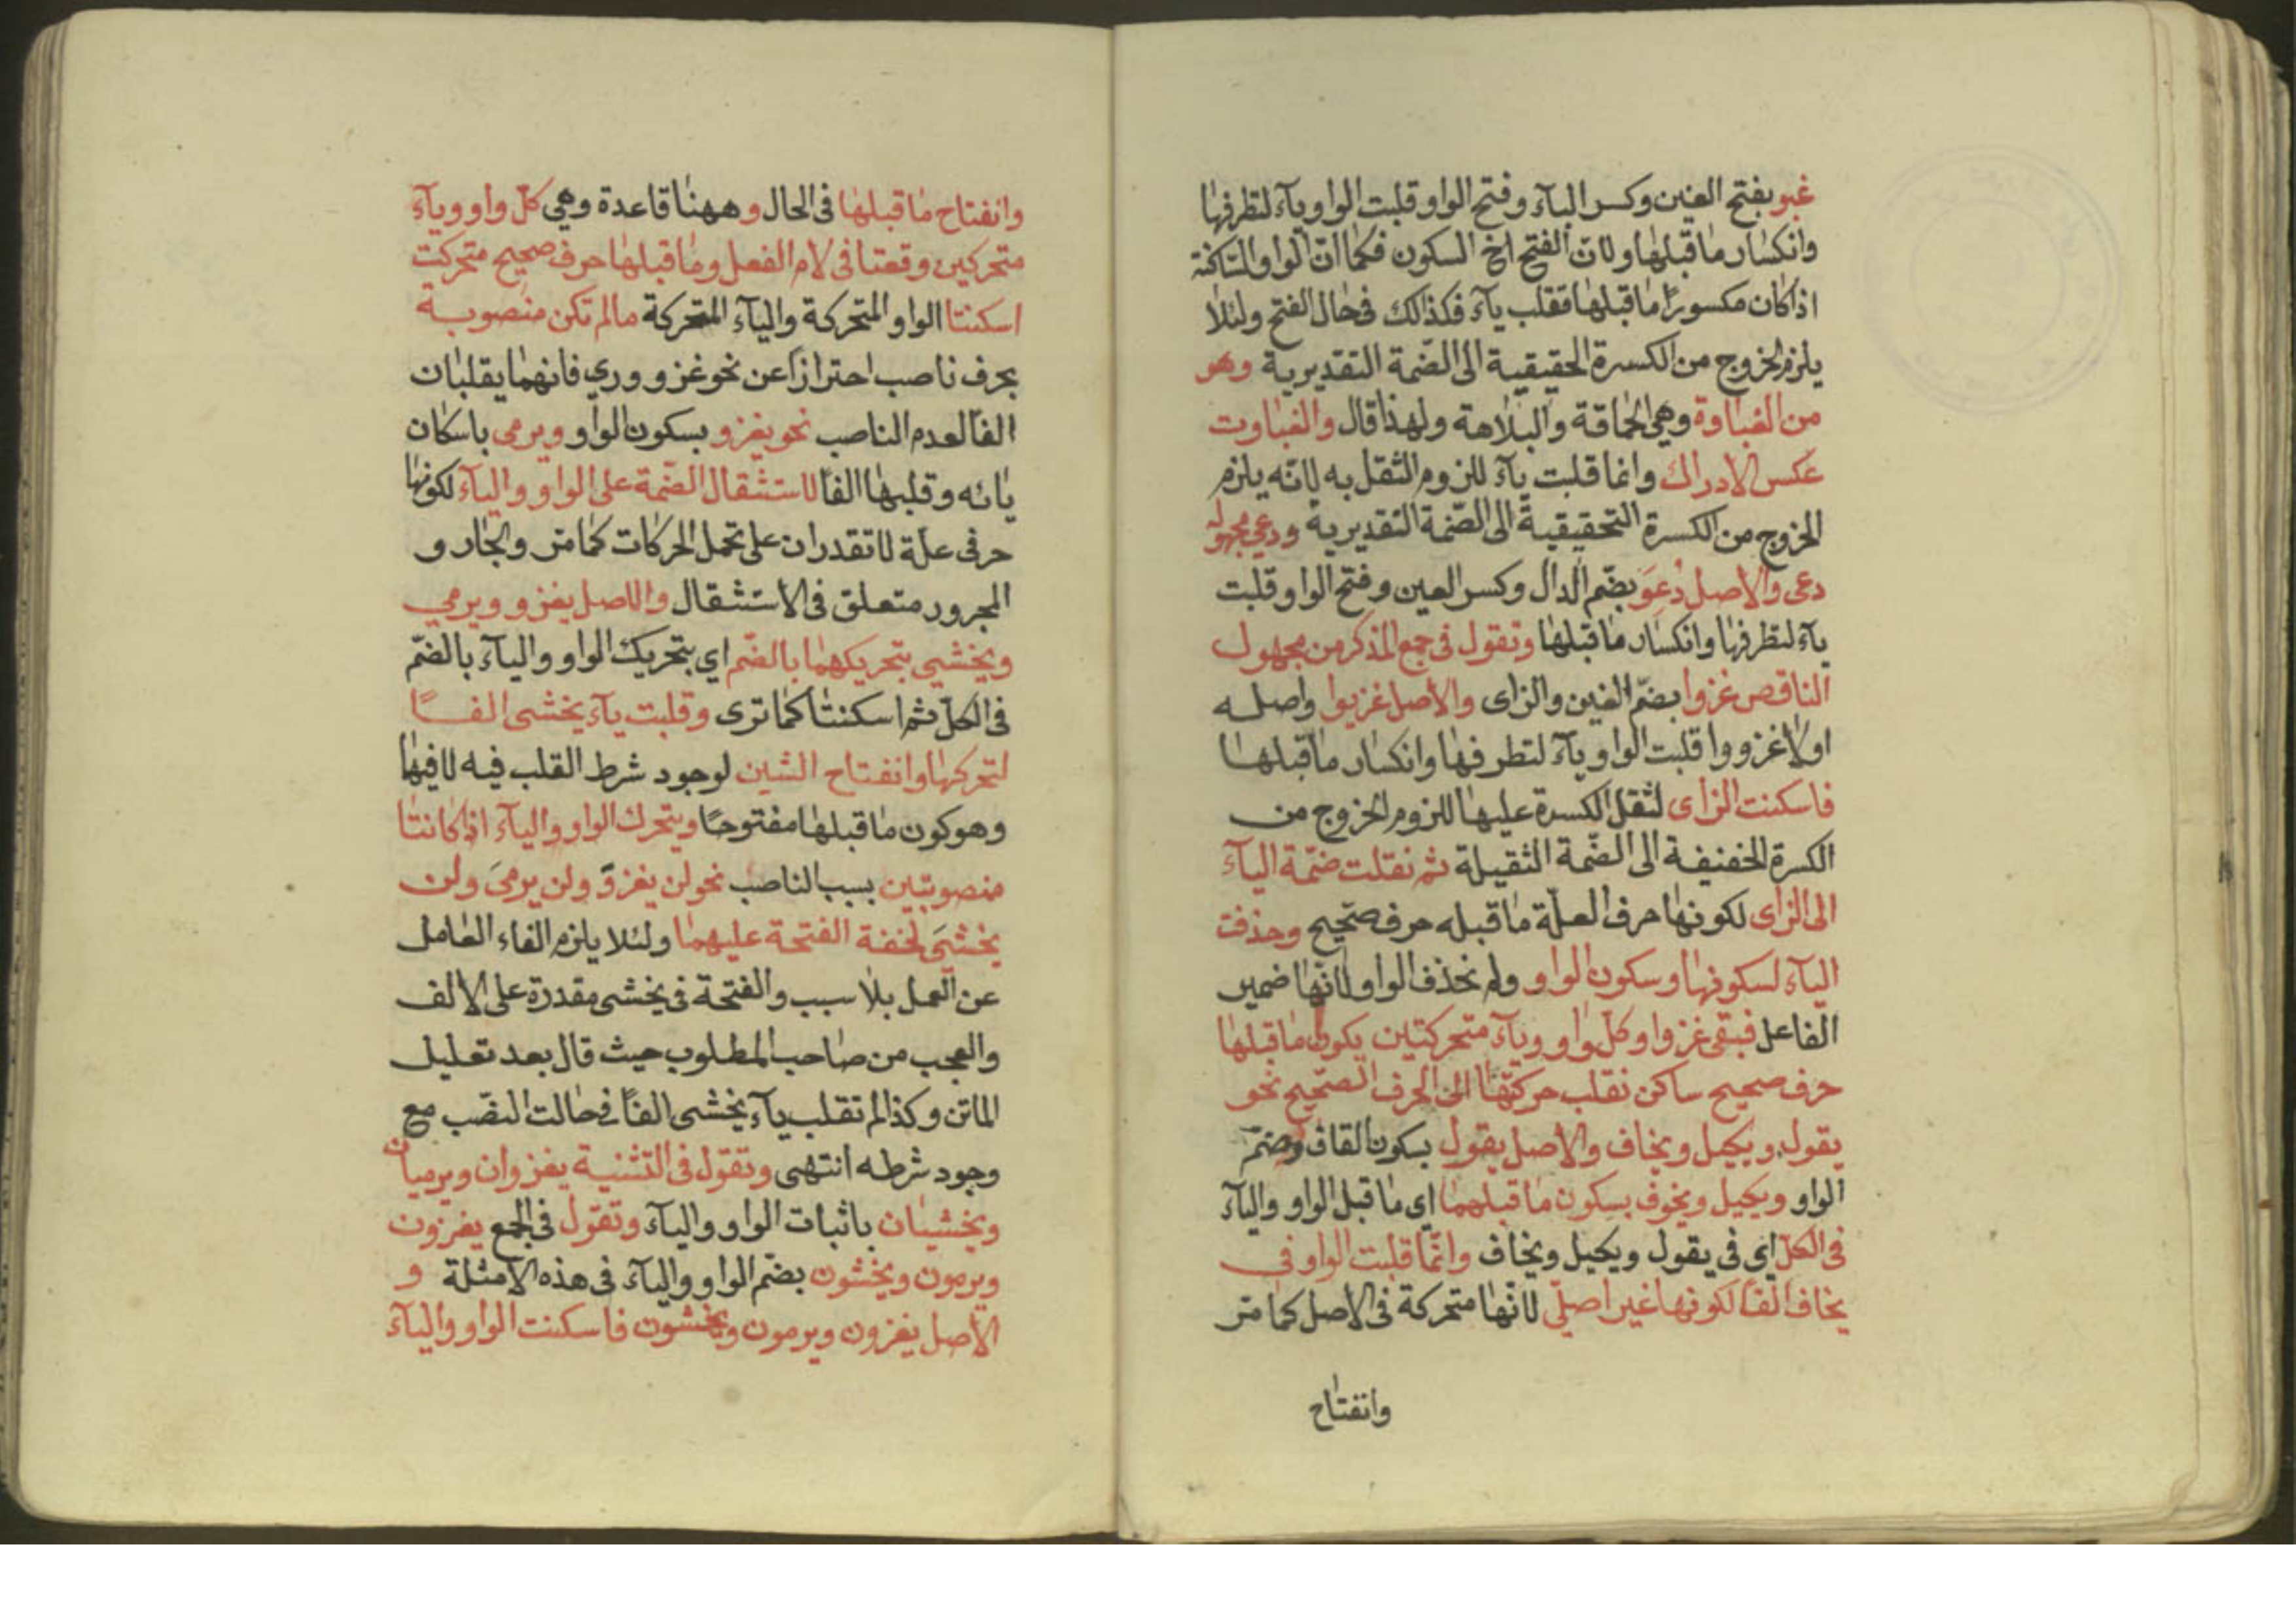 غبو بفتح الغين وكسر الباء وفتح الواو قلبت الواو ياء لتطرفها
وانكسار ما قبلها ولان الفتح اخ السكون فكما ان الواو الساكنة
اذا كان مكسورًا ما قبلها فقلب ياء فكذالك في حال الفتح ولئلا
يلزم الخروج من الكسرة الحقيقية الى الضمة التقديرية وهو
من الغباوة وهي الحماقة والبلاهة ولهذا قال والغباوت
عكس الادراك وانما قلبت ياء للزوم الثقل به لانه يلزم
الخروج من الكسرة التحقيقية الى الضمة التقديرية ودعي مجهول
دعى والاصل دُعِوَ بضم الدال وكسر العين وفتح الواو قلبت
ياء لتطرفها وانكسار ما قبلها وتقول في جمع المذكر من مجهول
الناقص غزوا بضم الغين والزاى والاصل غزيوا واصله
اولا غزووا قلبت الواو ياء لتطرفها وانكسار ما قبلها
فاسكنت الزاى لثقل الكسرة عليها للزوم الخروج من
الكسرة الخفيفة الى الضمة الثقيلة ثم نقلت ضمة الياء
الى الزاى لكونها حرف العلة ما قبله حرف صحيح وحذفت
الياء لسكونها وسكون الواو ولم نحذف الواو لانها ضمير
الفاعل فبقى غزوا وكل واو وياء متحركتين يكون ما قبلها
حرف صحيح ساكن نقلب حركتها الى الحرف الصحيح نحو
يقول ويكيل ويخاف والاصل يقول بسكون القاف وضم
الواو ويكيل ويخوف بسكون ما قبلهما اى ما قبل الواو والياء
في الكل اى في يقول ويكيل ويخاف وانما قلبت الواو في
يخاف الفًا لكونها غير اصلي لانها متحركة في الاصل كما مر
وانفتاح
وانفتاح ما قبلها في الحال وههنا قاعدة وهي كل واو وياء
متحركين وقعتا في لام الفعل وما قبلها حرف صحيح متحركت
اسكنتا الواو المتحركة والياء المتحركة مالم تكن منصوبة
بحرف ناصب احترازًا عن نحو غزو ورمي فانهما يقلبان
الفًا لعدم الناصب نحو يغزو بسكون الواو ويرمى باسكان
يائه وقلبها الفًا لاستثقال الضمة على الواو والياء لكونها
حرفى علة لا تقدران على تحمل الحركات كما مر والجار و
المجرور متعلق في الاستثقال والاصل يغزو ويرمي
ويخشي بتحريكهما بالضم اي بتحريك الواو والياء بالضم
في الكل ثم اسكنتا كما ترى وقلبت ياء يخشى الفًا
لتحركها وانفتاح الشين لوجود شرط القلب فيه لا فيها
وهو كون ما قبلها مفتوحًا ويتحرك الواو والياء اذا كانتا
منصوبتين بسبب الناصب نحو لن يغزوَ ولن يرميَ ولن
يخشيَ لخفة الفتحة عليهما ولئلا يلزم الغاء العامل
عن العمل بلا سبب والفتحة في يخشى مقدرة على الالف
والعجب من صاحب المطلوب حيث قال بعد تعليل
الماتن وكذا لم تقلب ياء يخشى الفًا في حالت النصب مع
وجود شرطه انتهى وتقول في التثنية يغزوان ويرميان
ويخشيان باثبات الواو والياء وتقول في الجمع يغزون
ويرمون ويخشون بضم الواو والياء في هذه الامثلة و
الاصل يغزون ويرمون ويخشون فاسكنت الواو والياء